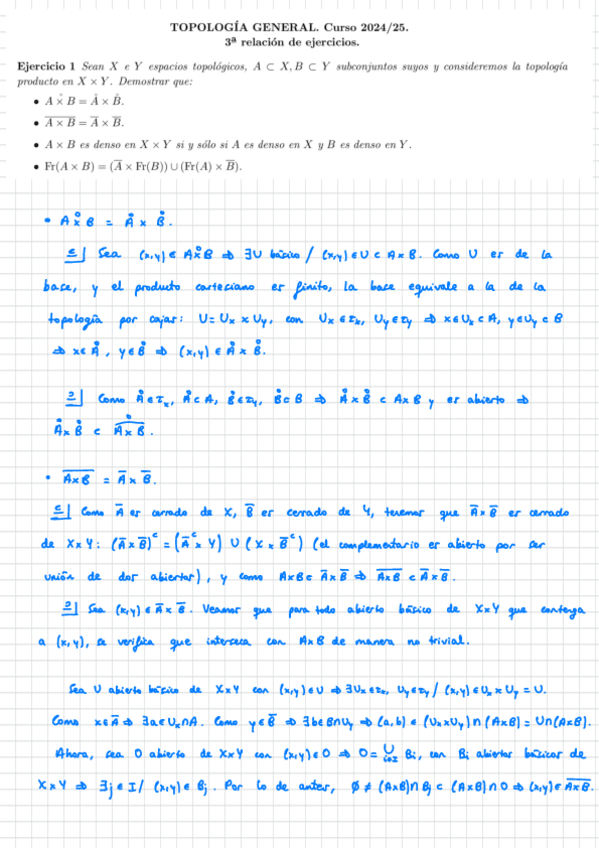 TOPOLOGÍA GENERAL. Curso 2024/25.
3ª relación de ejercicios.
Ejercicio 1 Sean X e Y espacios topológicos, A ⊂ X, B ⊂ Y subconjuntos suyos y consideremos la topología
producto en X × Y. Demostrar que:
• A ×̊ B = Å × B̊.
• \overline{A × B} = \overline{A} × \overline{B}.
• A × B es denso en X × Y si y sólo si A es denso en X y B es denso en Y.
• Fr(A × B) = (\overline{A} × Fr(B)) ∪ (Fr(A) × \overline{B}).
• A ×̊ B = Å × B̊.
⊆| Sea (x,y) ∈ A ×̊ B ⇒ ∃U básico / (x,y) ∈ U ⊂ A × B. Como U es de la
base, y el producto cartesiano es finito, la base equivale a la de la
topología por cajas: U = Ux × Uy, con Ux ∈ τx, Uy ∈ τy ⇒ x ∈ Ux ⊂ A, y ∈ Uy ⊂ B
⇒ x ∈ Å, y ∈ B̊ ⇒ (x,y) ∈ Å × B̊.
⊇| Como Å ∈ τx, Å ⊂ A, B̊ ∈ τy, B̊ ⊂ B ⇒ Å × B̊ ⊂ A × B y es abierto ⇒
Å × B̊ ⊂ A ×̊ B.
• \overline{A × B} = \overline{A} × \overline{B}.
⊆| Como \overline{A} es cerrado de X, \overline{B} es cerrado de Y, tenemos que \overline{A} × \overline{B} es cerrado
de X × Y: (\overline{A} × \overline{B})^c = (\overline{A}^c × Y) ∪ (X × \overline{B}^c) (el complementario es abierto por ser
unión de dos abiertos), y como A × B ⊂ \overline{A} × \overline{B} ⇒ \overline{A × B} ⊂ \overline{A} × \overline{B}.
⊇| Sea (x,y) ∈ \overline{A} × \overline{B}. Veamos que para todo abierto básico de X × Y que contenga
a (x,y), se verifica que interseca con A × B de manera no trivial.
Sea U abierto básico de X × Y con (x,y) ∈ U ⇒ ∃Ux ∈ τx, Uy ∈ τy / (x,y) ∈ Ux × Uy = U.
Como x ∈ \overline{A} ⇒ ∃a ∈ Ux ∩ A. Como y ∈ \overline{B} ⇒ ∃b ∈ B ∩ Uy ⇒ (a,b) ∈ (Ux × Uy) ∩ (A × B) = U ∩ (A × B).
Ahora, sea O abierto de X × Y con (x,y) ∈ O ⇒ O = ∪_{i∈I} Bi, con Bi abiertos básicos de
X × Y ⇒ ∃j ∈ I / (x,y) ∈ Bj. Por lo de antes, ∅ ≠ (A × B) ∩ Bj ⊂ (A × B) ∩ O ⇒ (x,y) ∈ \overline{A × B}.